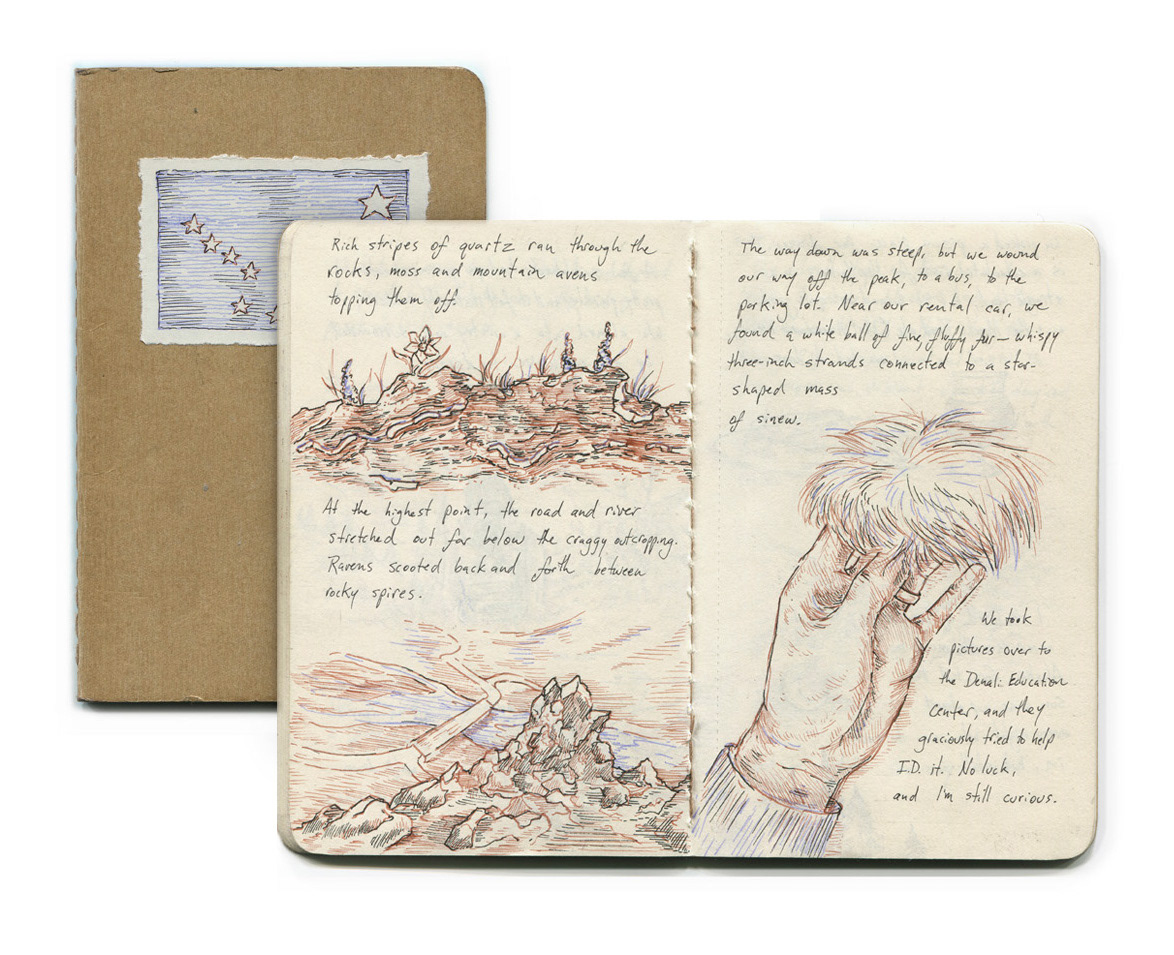 Rich stripes of quartz ran through the
rocks, moss and mountain avens
topping them off.
At the highest point, the road and river
stretched out far below the craggy outcropping.
Ravens scooted back and forth between
rocky spires.
The way down was steep, but we wound
our way off the peak, to a bus, to the
parking lot. Near our rental car, we
found a white ball of fine, fluffy fur — whispy
three-inch strands connected to a star-
shaped mass
of sinew.
We took
pictures over to
the Denali Education
center, and they
graciously tried to help
I.D. it. No luck,
and I'm still curious.